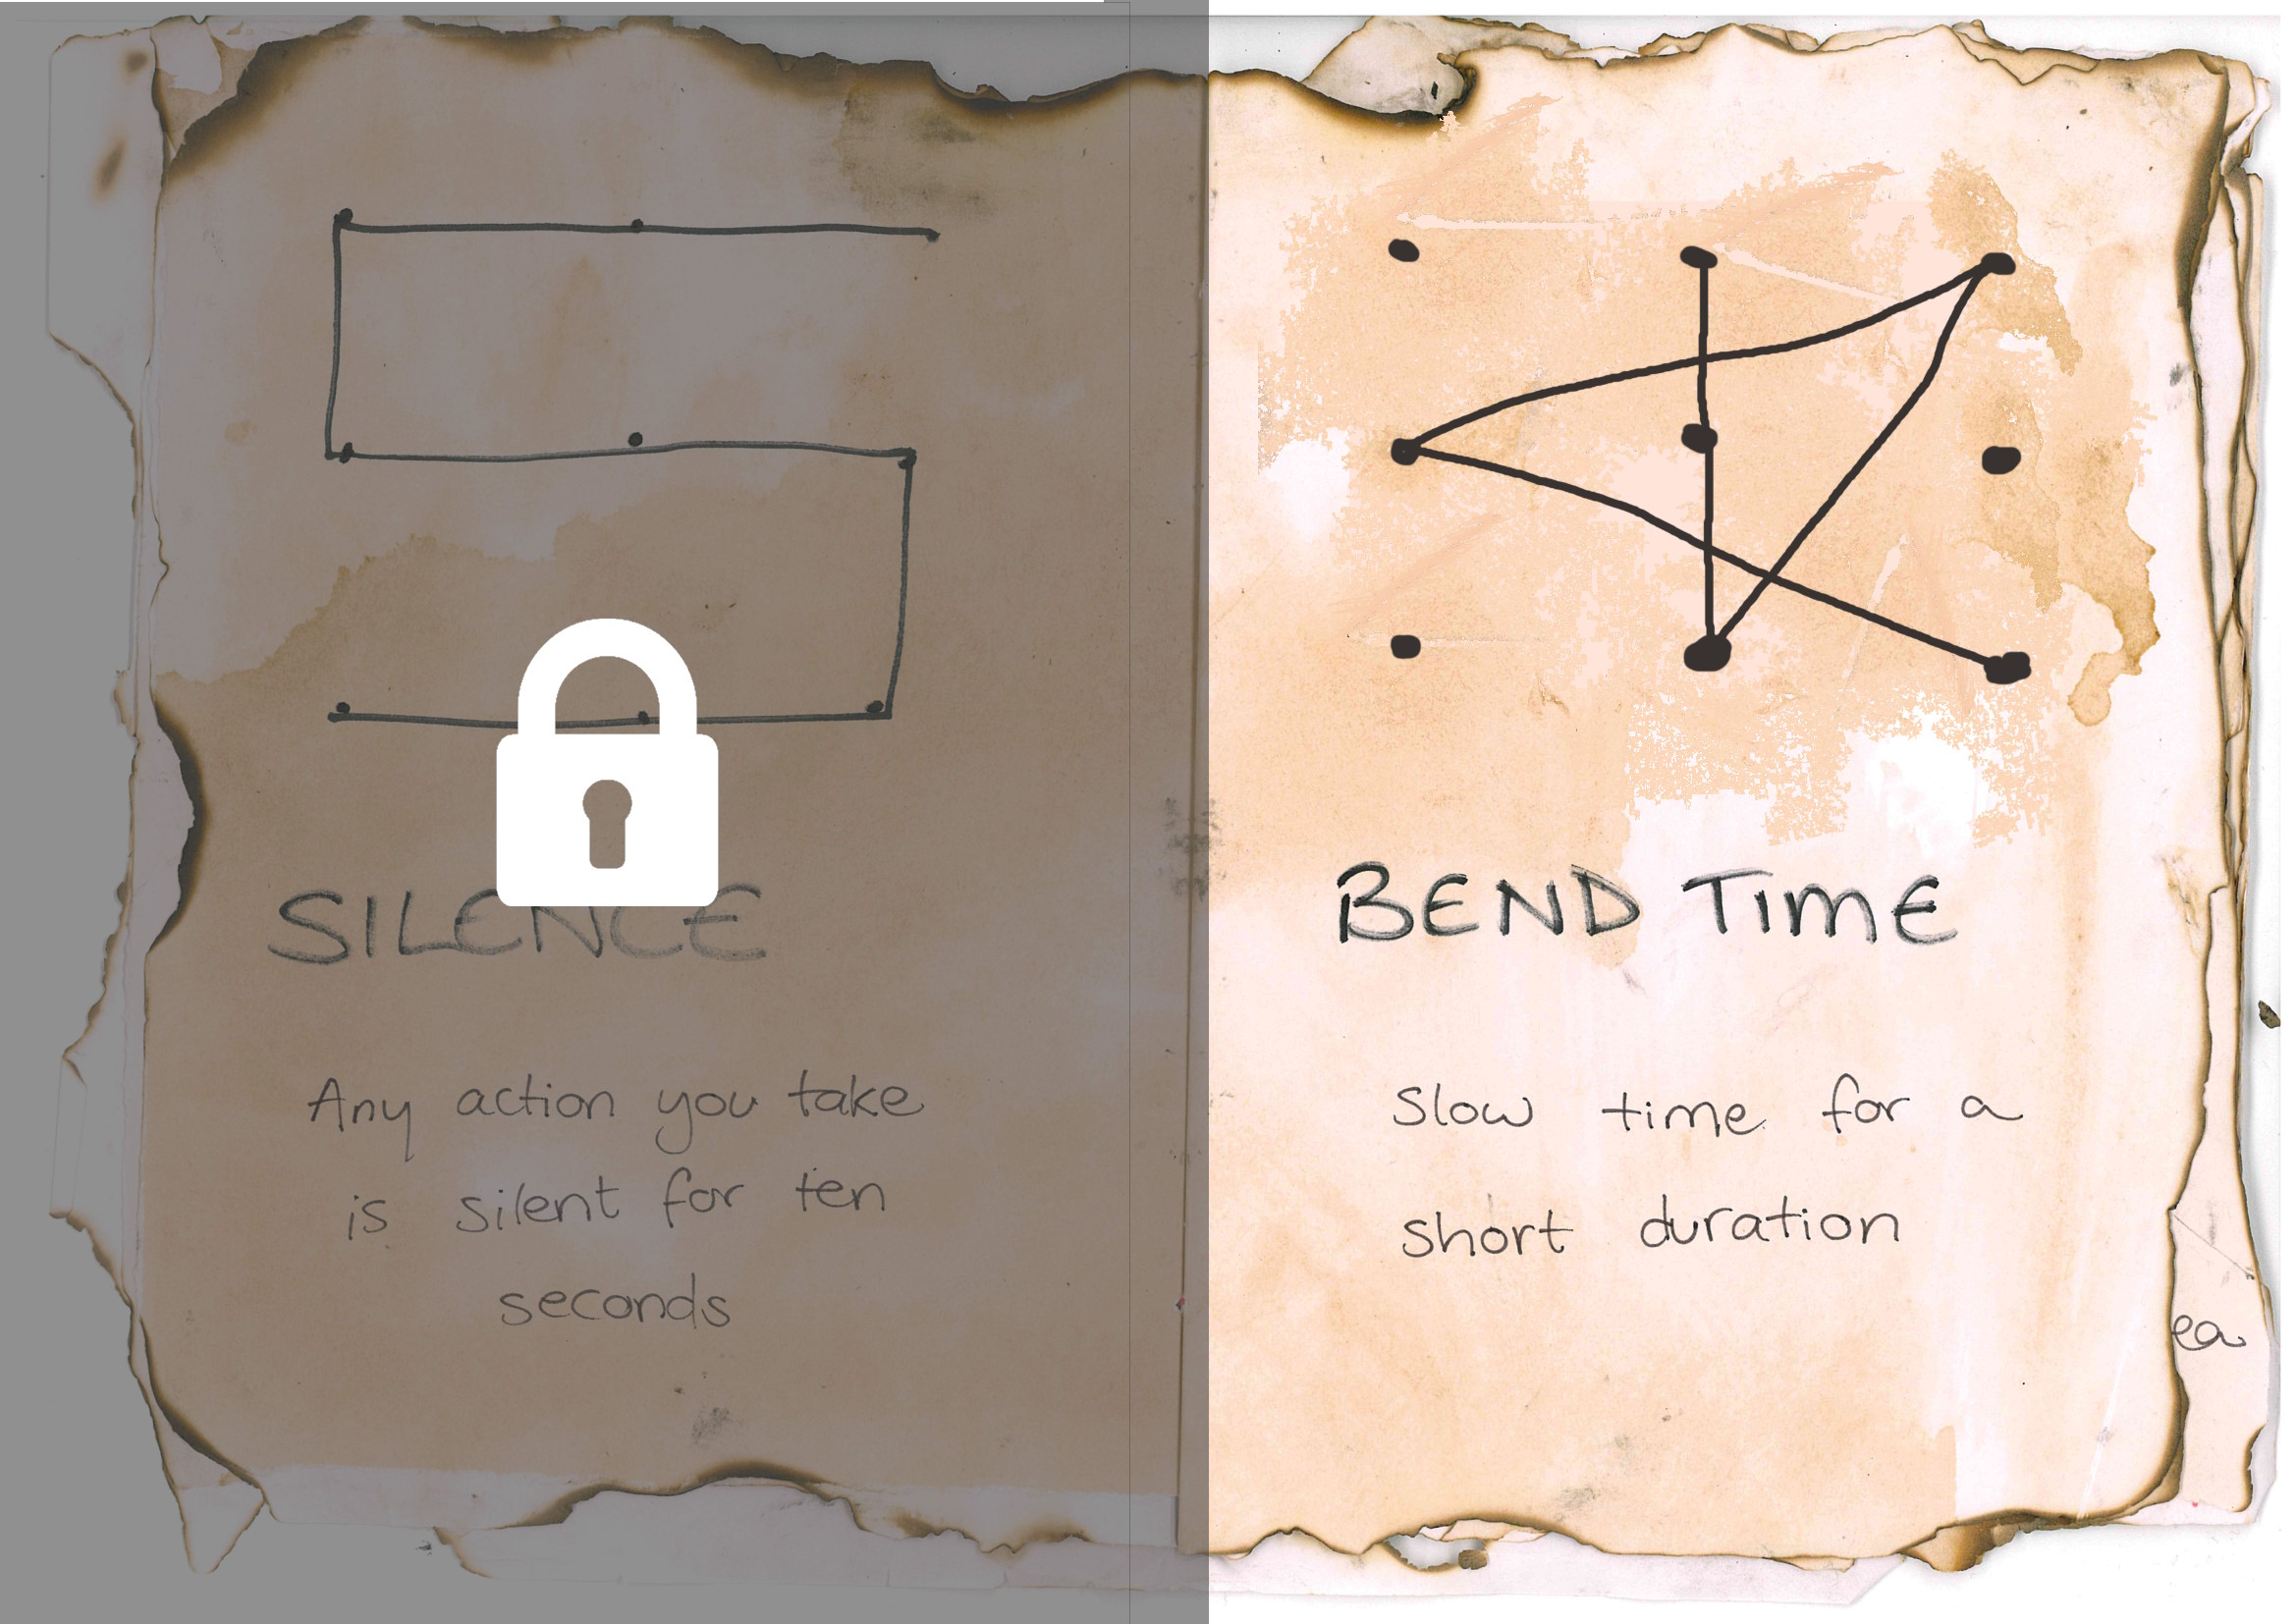 SILENCE
Any action you take
is silent for ten
seconds
BEND TIME
Slow time for a
short duration
ea